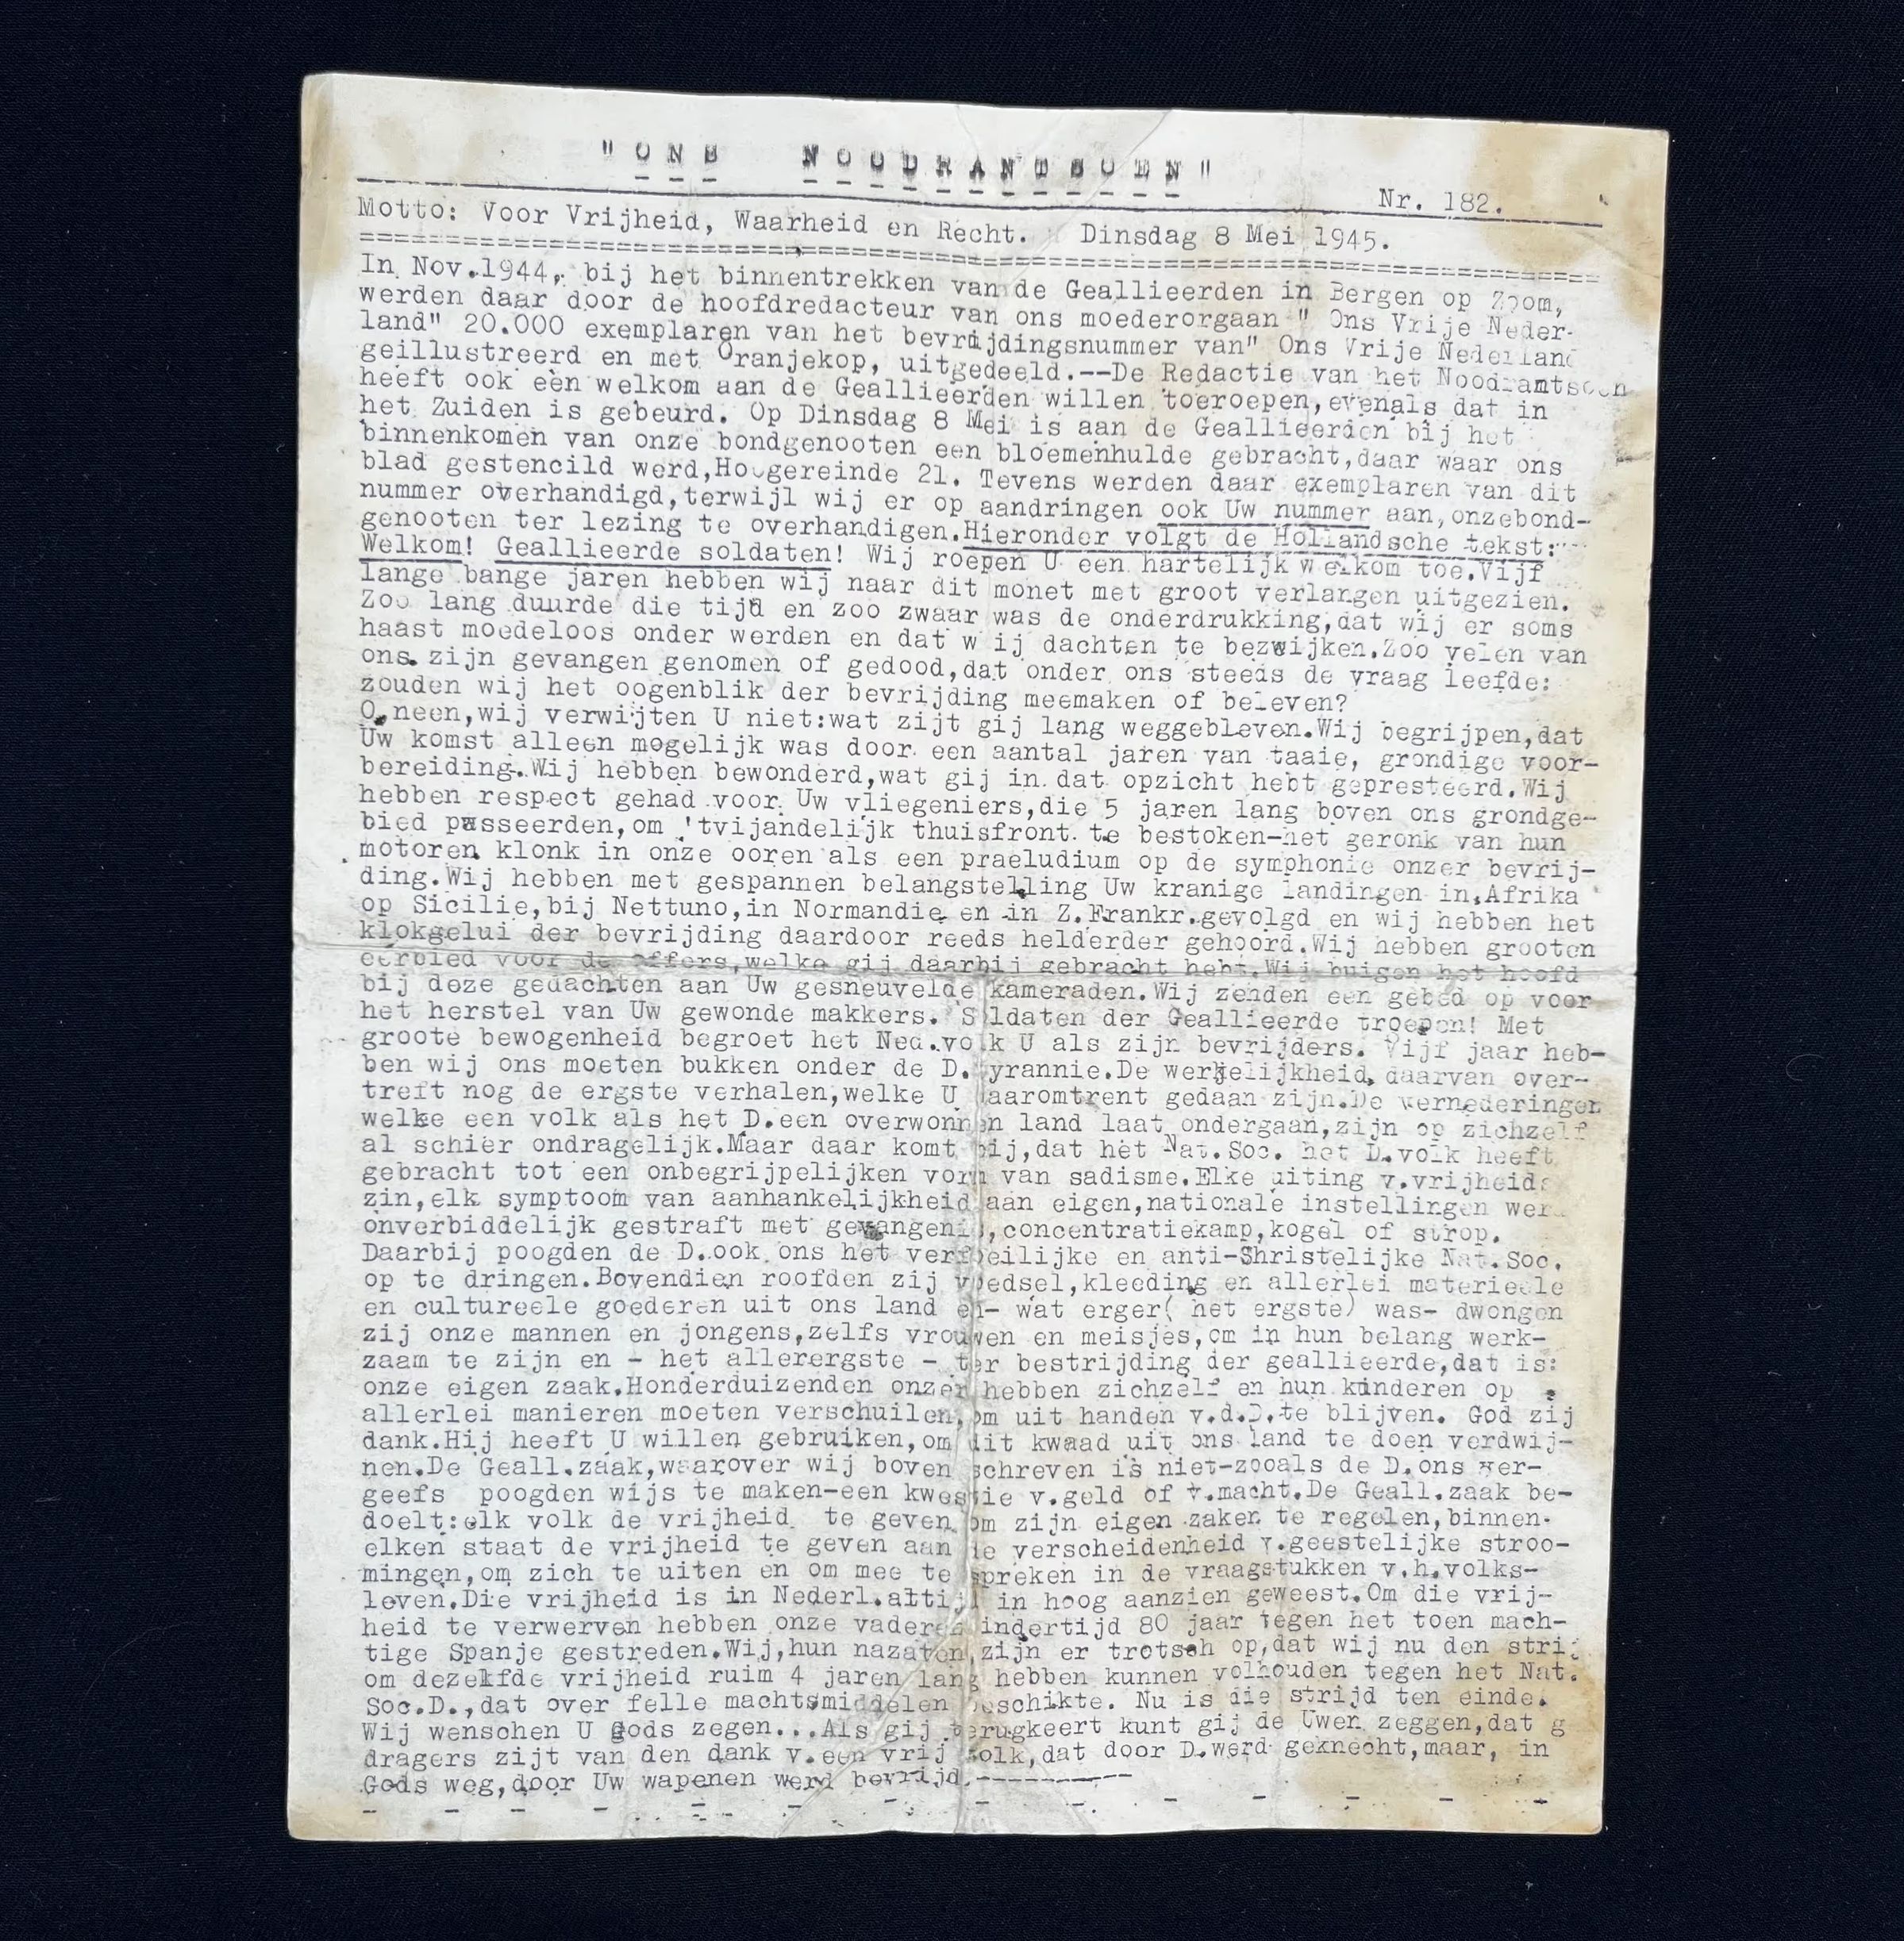 "ONS NOODRANTSOEN"
Nr. 182.
Motto: Voor Vrijheid, Waarheid en Recht. Dinsdag 8 Mei 1945.
In Nov.1944, bij het binnentrekken van de Geallieerden in Bergen op Zoom,
werden daar door de hoofdredacteur van ons moederorgaan " Ons Vrije Neder-
land" 20.000 exemplaren van het bevrijdingsnummer van" Ons Vrije Nederland
geillustreerd en met Oranjekop, uitgedeeld.--De Redactie van het Noodramtsoen
heeft ook eèn welkom aan de Geallieerden willen toeroepen,evenals dat in
het Zuiden is gebeurd. Op Dinsdag 8 Mei is aan de Geallieerden bij het
binnenkomen van onze bondgenooten een bloemenhulde gebracht,daar waar ons
blad gestencild werd,Hoogereinde 21. Tevens werden daar exemplaren van dit
nummer overhandigd,terwijl wij er op aandringen ook Uw nummer aan,onzebond-
genooten ter lezing te overhandigen.Hieronder volgt de Hollandsche tekst:
Welkom! Geallieerde soldaten! Wij roepen U een hartelijk welkom toe.Vijf
lange bange jaren hebben wij naar dit monet met groot verlangen uitgezien.
Zoo lang duurde die tijd en zoo zwaar was de onderdrukking,dat wij er soms
haast moedeloos onder werden en dat w ij dachten te bezwijken.Zoo velen van
ons zijn gevangen genomen of gedood,dat onder ons steeds de vraag leefde:
zouden wij het oogenblik der bevrijding meemaken of beleven?
O,neen,wij verwijten U niet:wat zijt gij lang weggebleven.Wij begrijpen,dat
Uw komst alleen mogelijk was door een aantal jaren van taaie, grondige voor-
bereiding.Wij hebben bewonderd,wat gij in dat opzicht hebt gepresteerd.Wij
hebben respect gehad voor Uw vliegeniers,die 5 jaren lang boven ons grondge-
bied passeerden,om 'tvijandelijk thuisfront te bestoken-het geronk van hun
motoren klonk in onze ooren als een praeludium op de symphonie onzer bevrij-
ding.Wij hebben met gespannen belangstelling Uw kranige landingen in Afrika
op Sicilie,bij Nettuno,in Normandie en in Z.Frankr.gevolgd en wij hebben het
klokgelui der bevrijding daardoor reeds helderder gehoord.Wij hebben grooten
eerbied voor de offers,welke gij daarbij gebracht hebt.Wij buigen het hoofd
bij deze gedachten aan Uw gesneuvelde kameraden.Wij zenden een gebed op voor
het herstel van Uw gewonde makkers. Soldaten der Geallieerde troepen! Met
groote bewogenheid begroet het Ned.volk U als zijn bevrijders. Vijf jaar heb-
ben wij ons moeten bukken onder de D.tyrannie.De werkelijkheid daarvan over-
treft nog de ergste verhalen,welke U daaromtrent gedaan zijn.De vernederingen
welke een volk als het D.een overwonnen land laat ondergaan,zijn op zichzelf
al schier ondragelijk.Maar daar komt bij,dat het Nat.Soc. het D.volk heeft
gebracht tot een onbegrijpelijken vorm van sadisme.Elke uiting v.vrijheids
zin,elk symptoom van aanhankelijkheid aan eigen,nationale instellingen werd
onverbiddelijk gestraft met gevangenis,concentratiekamp,kogel of strop.
Daarbij poogden de D.ook ons het verfoeilijke en anti-Shristelijke Nat.Soc.
op te dringen.Bovendien roofden zij voedsel,kleeding en allerlei materieele
en cultureele goederen uit ons land en- wat erger( het ergste) was- dwongen
zij onze mannen en jongens,zelfs vrouwen en meisjes,om in hun belang werk-
zaam te zijn en - het allerergste - ter bestrijding der geallieerde,dat is:
onze eigen zaak.Honderduizenden onzer hebben zichzelf en hun kinderen op
allerlei manieren moeten verschuilen,om uit handen v.d.D.te blijven. God zij
dank.Hij heeft U willen gebruiken,om dit kwaad uit ons land te doen verdwij-
nen.De Geall.zaak,waarover wij boven schreven is niet-zooals de D.ons ver-
geefs poogden wijs te maken-een kwestie v.geld of v.macht.De Geall.zaak be-
doelt:elk volk de vrijheid te geven om zijn eigen zaken te regelen,binnen-
elken staat de vrijheid te geven aan de verscheidenheid v.geestelijke stroo-
mingen,om zich te uiten en om mee te spreken in de vraagstukken v.h.volks-
leven.Die vrijheid is in Nederl.altijd in hoog aanzien geweest.Om die vrij-
heid te verwerven hebben onze vaderen indertijd 80 jaar tegen het toen mach-
tige Spanje gestreden.Wij,hun nazaten,zijn er trotsch op,dat wij nu den strij
om dezelfde vrijheid ruim 4 jaren lang hebben kunnen volhouden tegen het Nat.
Soc.D.,dat over felle machtsmiddelen beschikte. Nu is die strijd ten einde.
Wij wenschen U Gods zegen...Als gij terugkeert kunt gij de Uwen zeggen,dat g
dragers zijt van den dank v.een vrij volk,dat door D.werd geknecht,maar, in
Gods weg,door Uw wapenen werd bevrijd.----------